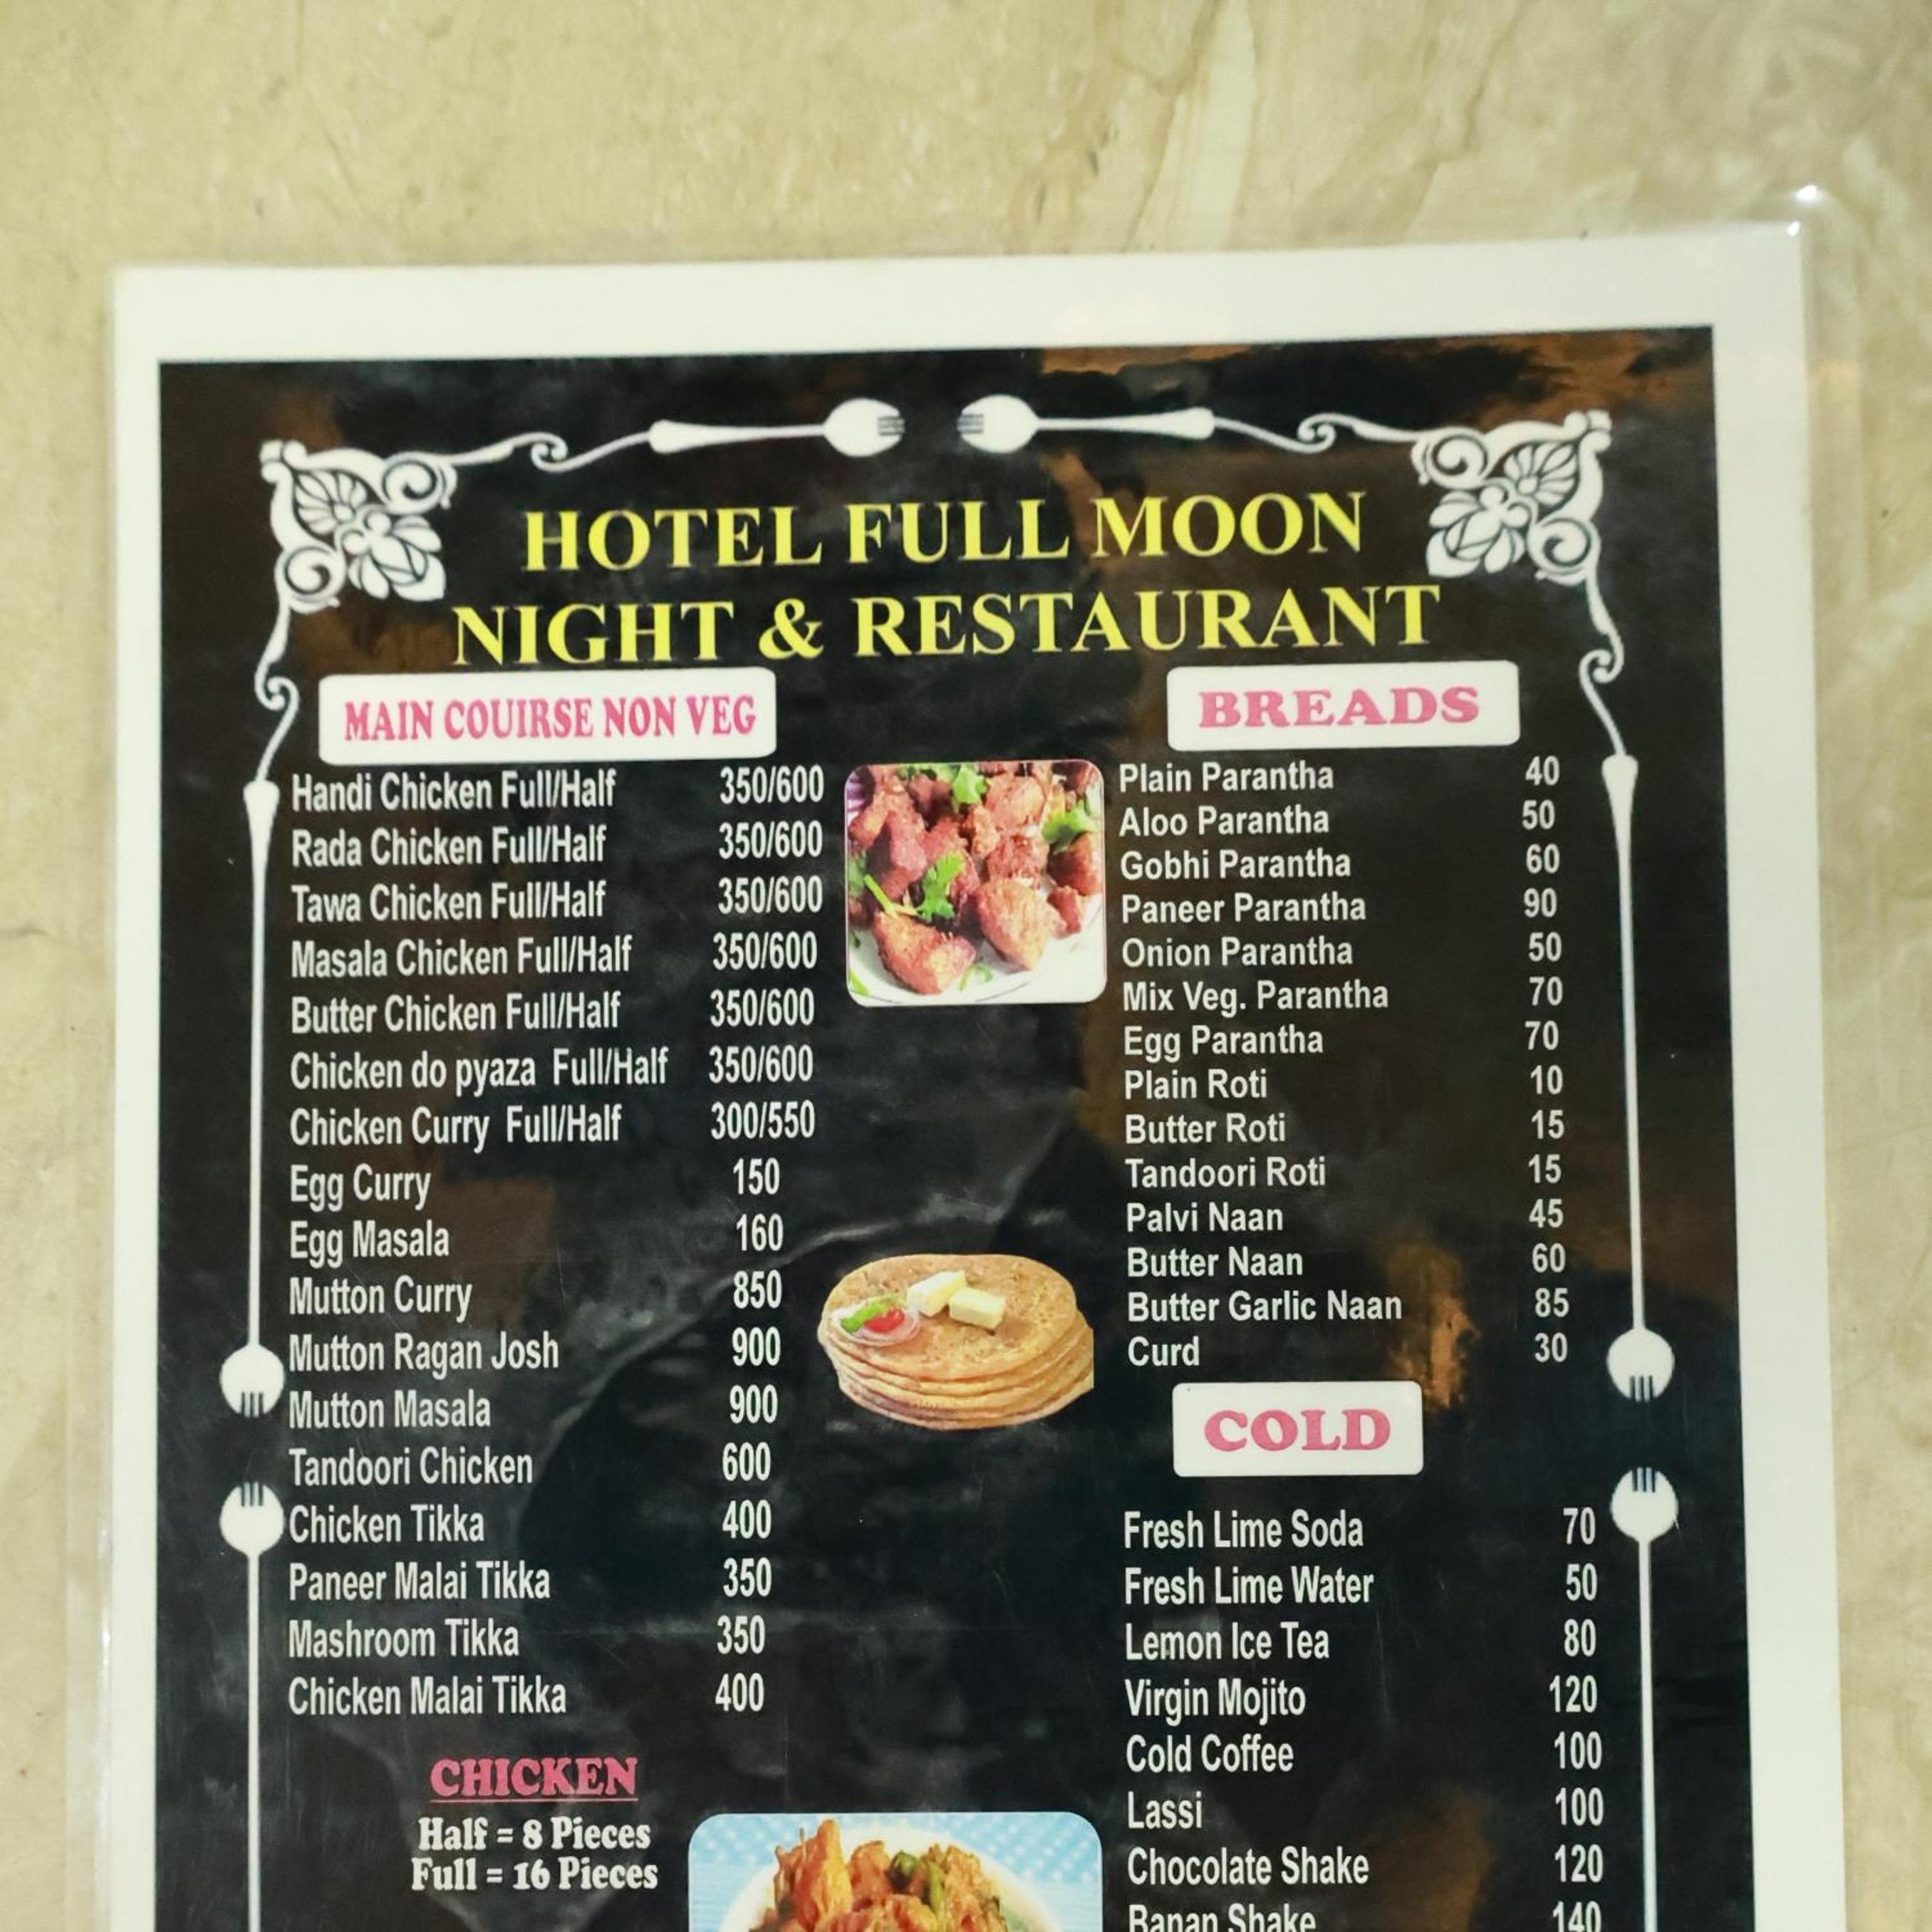 HOTEL FULL MOON
NIGHT & RESTAURANT
MAIN COUIRSE NON VEG
Handi Chicken Full/Half 350/600
Rada Chicken Full/Half 350/600
Tawa Chicken Full/Half 350/600
Masala Chicken Full/Half 350/600
Butter Chicken Full/Half 350/600
Chicken do pyaza Full/Half 350/600
Chicken Curry Full/Half 300/550
Egg Curry 150
Egg Masala 160
Mutton Curry 850
Mutton Ragan Josh 900
Mutton Masala 900
Tandoori Chicken 600
Chicken Tikka 400
Paneer Malai Tikka 350
Mashroom Tikka 350
Chicken Malai Tikka 400
CHICKEN
Half = 8 Pieces
Full = 16 Pieces
BREADS
Plain Parantha 40
Aloo Parantha 50
Gobhi Parantha 60
Paneer Parantha 90
Onion Parantha 50
Mix Veg. Parantha 70
Egg Parantha 70
Plain Roti 10
Butter Roti 15
Tandoori Roti 15
Palvi Naan 45
Butter Naan 60
Butter Garlic Naan 85
Curd 30
COLD
Fresh Lime Soda 70
Fresh Lime Water 50
Lemon Ice Tea 80
Virgin Mojito 120
Cold Coffee 100
Lassi 100
Chocolate Shake 120
Banan Shake 140